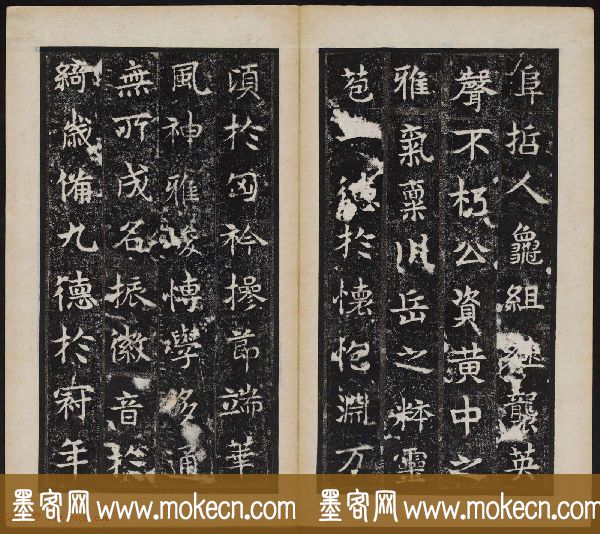 阜哲人龜組繼襲英
聲不朽公資黃中之
雅氣稟川岳之粹靈
苞一德於懷抱淵万
頃於匈衿摻節端華
風神雅峻愽學多通
無所成名振徽音於
綺歲備九德於冠年
墨客网 www.mokecn.com 墨客网 www.mokecn.com